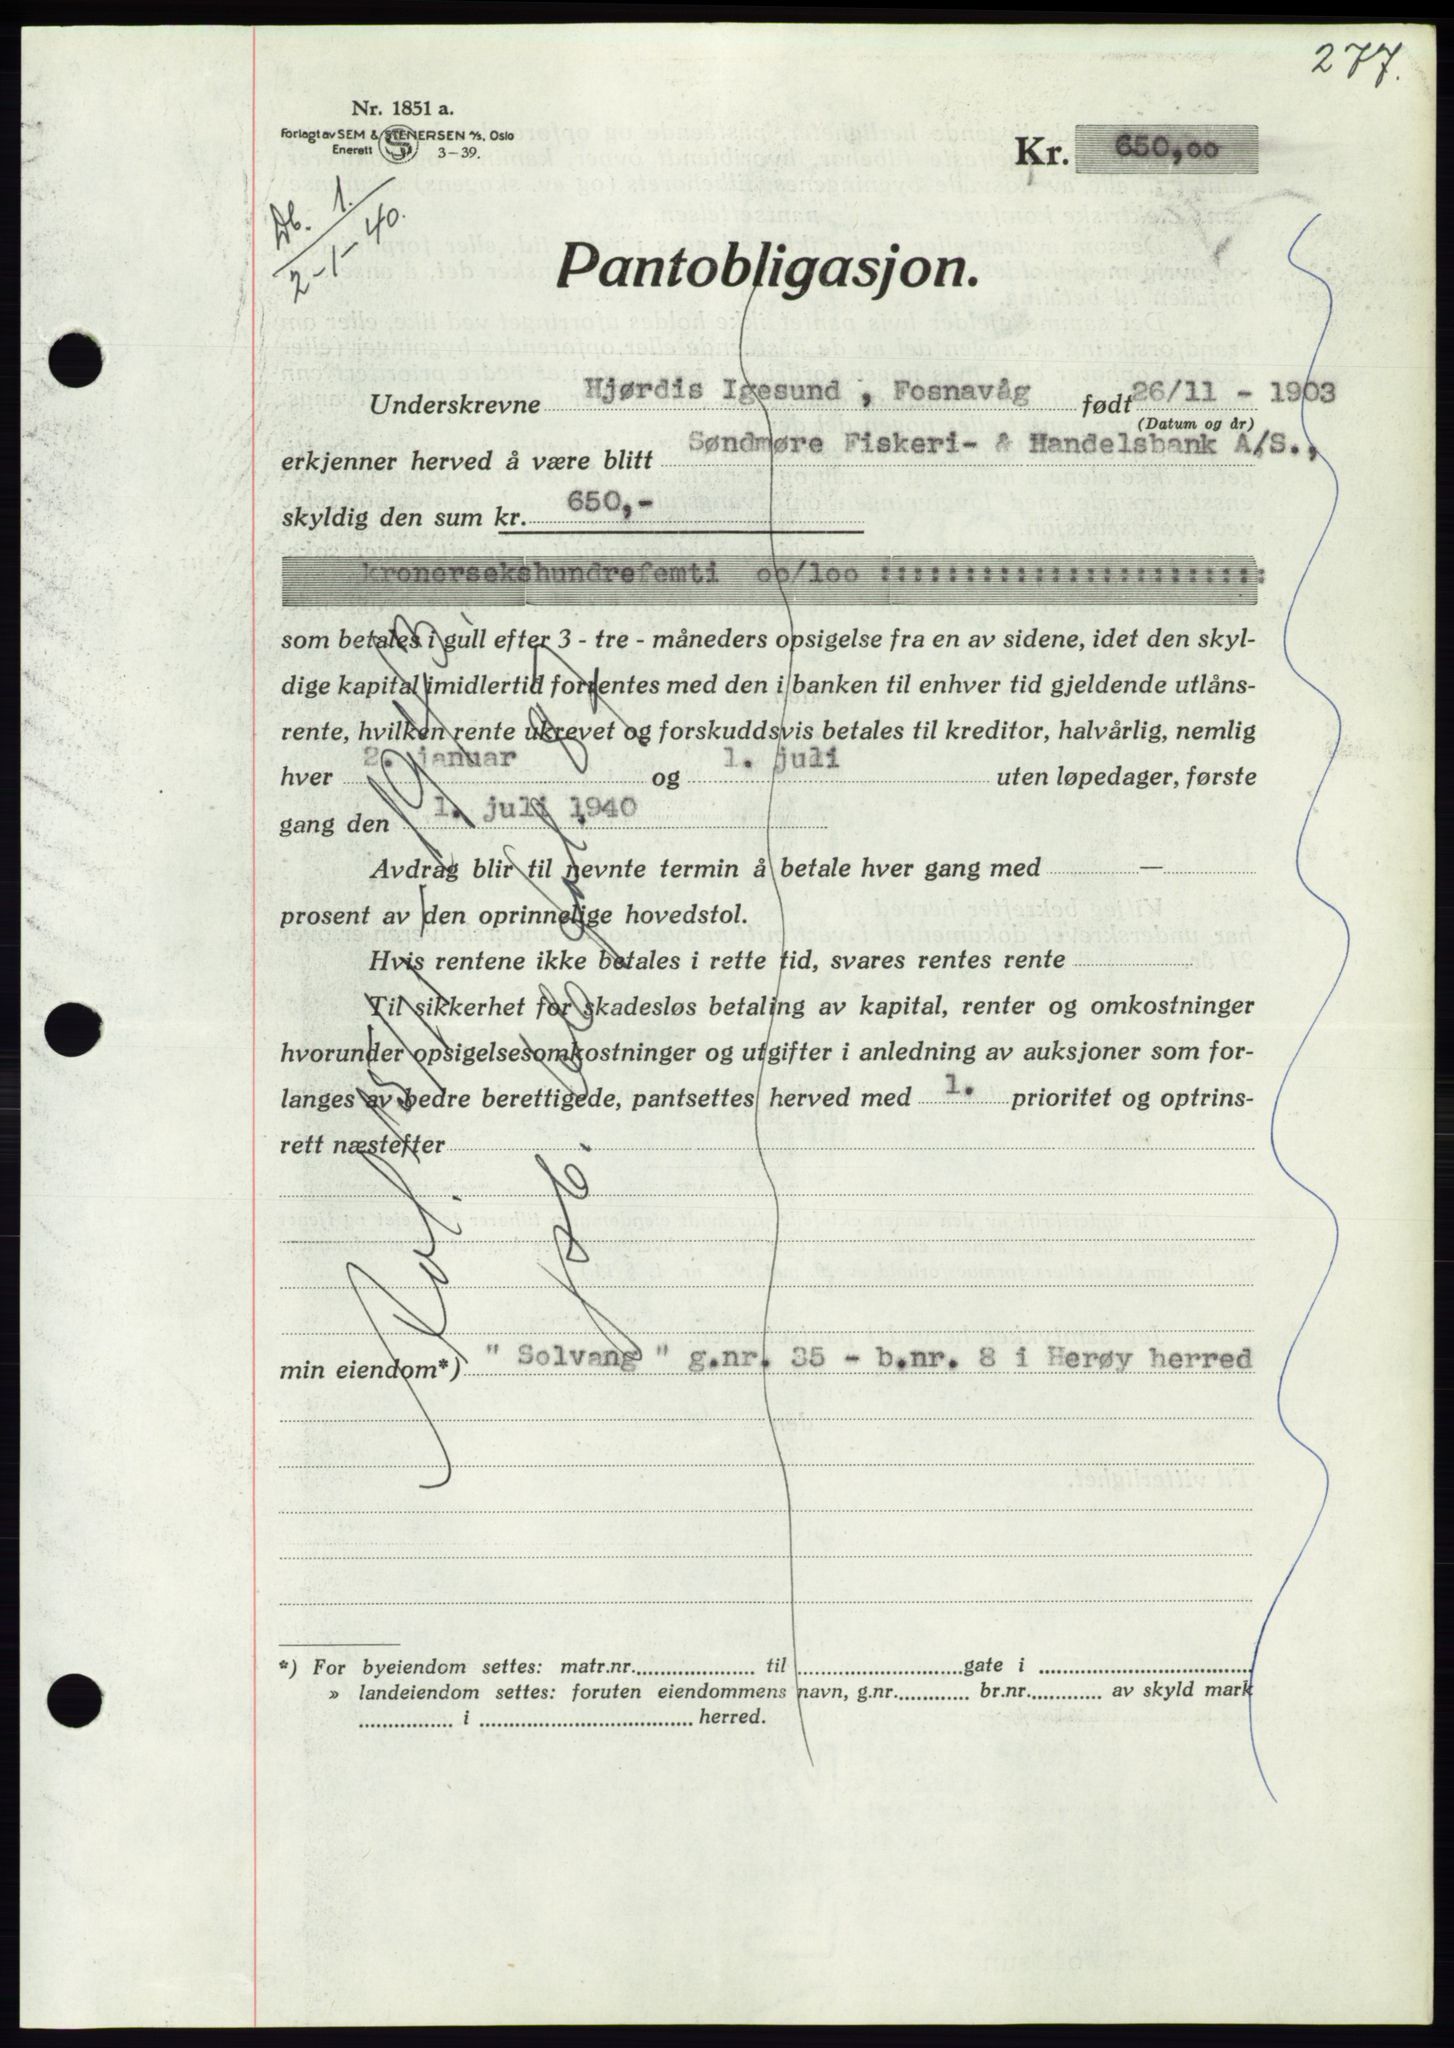 277.
Nr. 1851 a.
Forlagt av SEM & STENERSEN A/S, Oslo
Enerett S 3-39.
Kr. 650,00
Db. 1.
2-1-40.
Pantobligasjon.
Underskrevne Hjørdis Igesund , Fosnavåg født 26/11 - 1903
(Datum og år)
erkjenner herved å være blitt Søndmøre Fiskeri- & Handelsbank A/S.,
skyldig den sum kr. 650,-
kronerseks­hundrefemti oo/100 ::::::::::::::::::::::::
som betales i gull efter 3 - tre - måneders opsigelse fra en av sidene, idet den skyl-
dige kapital imidlertid forrentes med den i banken til enhver tid gjeldende utlåns-
rente, hvilken rente ukrevet og forskuddsvis betales til kreditor, halvårlig, nemlig
hver 2. januar og 1. juli uten løpedager, første
gang den 1. juli 1940
Avdrag blir til nevnte termin å betale hver gang med —
prosent av den oprinnelige hovedstol.
Hvis rentene ikke betales i rette tid, svares rentes rente
Til sikkerhet for skadesløs betaling av kapital, renter og omkostninger
hvorunder opsigelsesomkostninger og utgifter i anledning av auksjoner som for-
langes av bedre berettigede, pantsettes herved med 1. prioritet og optrins-
rett næstefter
min eiendom*) " Solvang " g.nr. 35 - b.nr. 8 i Herøy herred
*) For byeiendom settes: matr.nr. til gate i
» landeiendom settes: foruten eiendommens navn, g.nr. br.nr. av skyld mark
i herred.